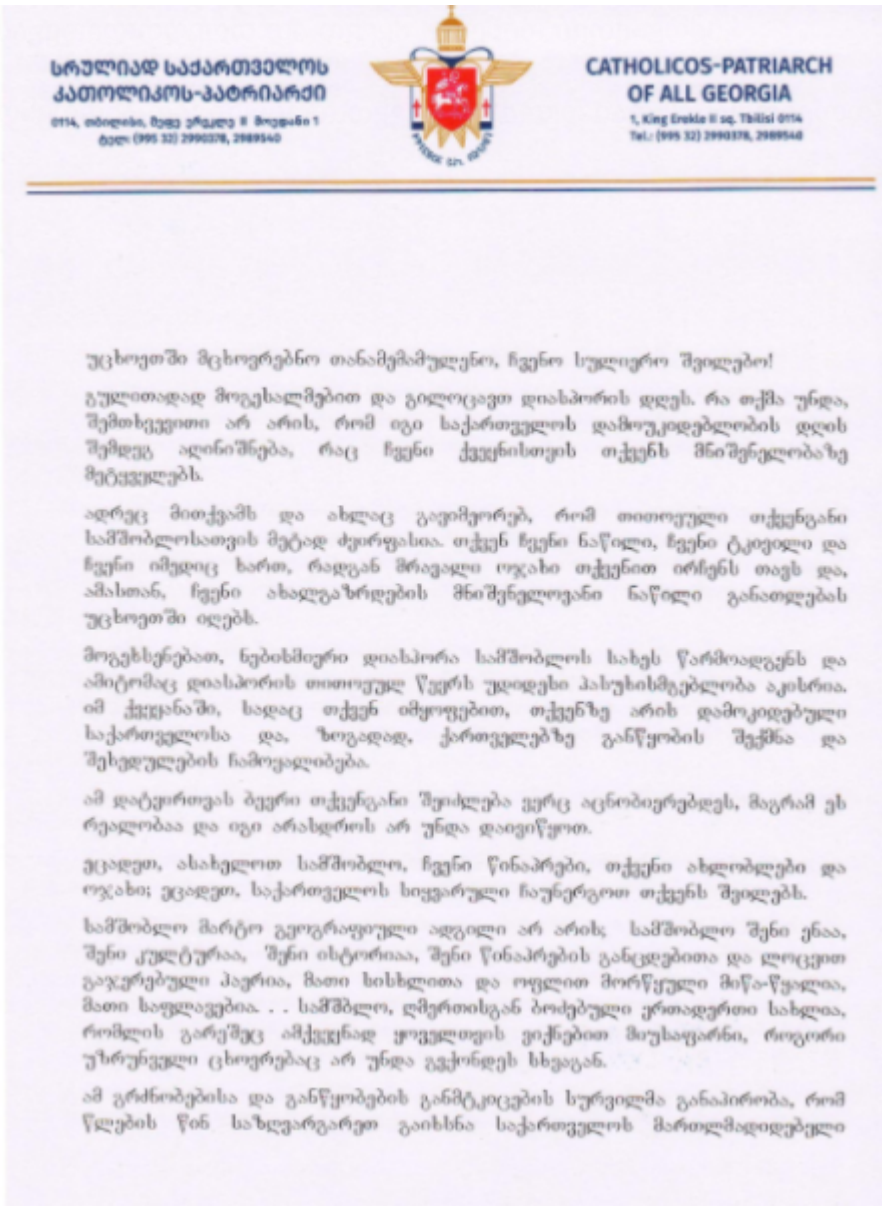 ᲡᲠᲣᲚᲘᲐᲓ ᲡᲐᲥᲐᲠᲗᲕᲔᲚᲝᲡ
ᲙᲐᲗᲝᲚᲘᲙᲝᲡ-ᲞᲐᲢᲠᲘᲐᲠᲥᲘ
0114, თბილისი, მეფე ერეკლე II მოედანი 1
ტელ: (995 32) 2990378, 2989540
CATHOLICOS-PATRIARCH
OF ALL GEORGIA
1, King Erekle II sq. Tbilisi 0114
Tel.: (995 32) 2990378, 2989540
უცხოეთში მცხოვრებნო თანამემამულენო, ჩვენო სულიერო შვილებო!
გულითადად მოგესალმებით და გილოცავთ დიასპორის დღეს. რა თქმა უნდა,
შემთხვევითი არ არის, რომ იგი საქართველოს დამოუკიდებლობის დღის
შემდეგ აღინიშნება, რაც ჩვენი ქვეყნისთვის თქვენს მნიშვნელობაზე
მეტყველებს.
ადრეც მითქვამს და ახლაც გავიმეორებ, რომ თითოეული თქვენგანი
სამშობლოსათვის მეტად ძვირფასია. თქვენ ჩვენი ნაწილი, ჩვენი ტკივილი და
ჩვენი იმედიც ხართ, რადგან მრავალი ოჯახი თქვენით ირჩენს თავს და,
ამასთან, ჩვენი ახალგაზრდების მნიშვნელოვანი ნაწილი განათლებას
უცხოეთში იღებს.
მოგეხსენებათ, ნებისმიერი დიასპორა სამშობლოს სახეს წარმოადგენს და
ამიტომაც დიასპორის თითოეულ წევრს უდიდესი პასუხისმგებლობა აკისრია.
იმ ქვეყანაში, სადაც თქვენ იმყოფებით, თქვენზე არის დამოკიდებული
საქართველოსა და, ზოგადად, ქართველებზე განწყობის შექმნა და
შეხედულების ჩამოყალიბება.
ამ დატვირთვას ბევრი თქვენგანი შეიძლება ვერც აცნობიერებდეს, მაგრამ ეს
რეალობაა და იგი არასდროს არ უნდა დაივიწყოთ.
ეცადეთ, ასახელოთ სამშობლო, ჩვენი წინაპრები, თქვენი ახლობლები და
ოჯახი; ეცადეთ, საქართველოს სიყვარული ჩაუნერგოთ თქვენს შვილებს.
სამშობლო მარტო გეოგრაფიული ადგილი არ არის; სამშობლო შენი ენაა,
შენი კულტურაა, შენი ისტორიაა, შენი წინაპრების განცდებითა და ლოცვით
გაჯერებული ჰაერია, მათი სისხლითა და ოფლით მორწყული მიწა-წყალია,
მათი საფლავებია. . . სამშბლო, ღმერთისგან ბოძებული ერთადერთი სახლია,
რომლის გარეშეც ამქვეყნად ყოველთვის ვიქნებით მიუსაფარნი, როგორი
უზრუნველი ცხოვრებაც არ უნდა გვქონდეს სხვაგან.
ამ გრძნობებისა და განწყობების განმტკიცების სურვილმა განაპირობა, რომ
წლების წინ საზღვარგარეთ გაიხსნა საქართველოს მართლმადიდებელი